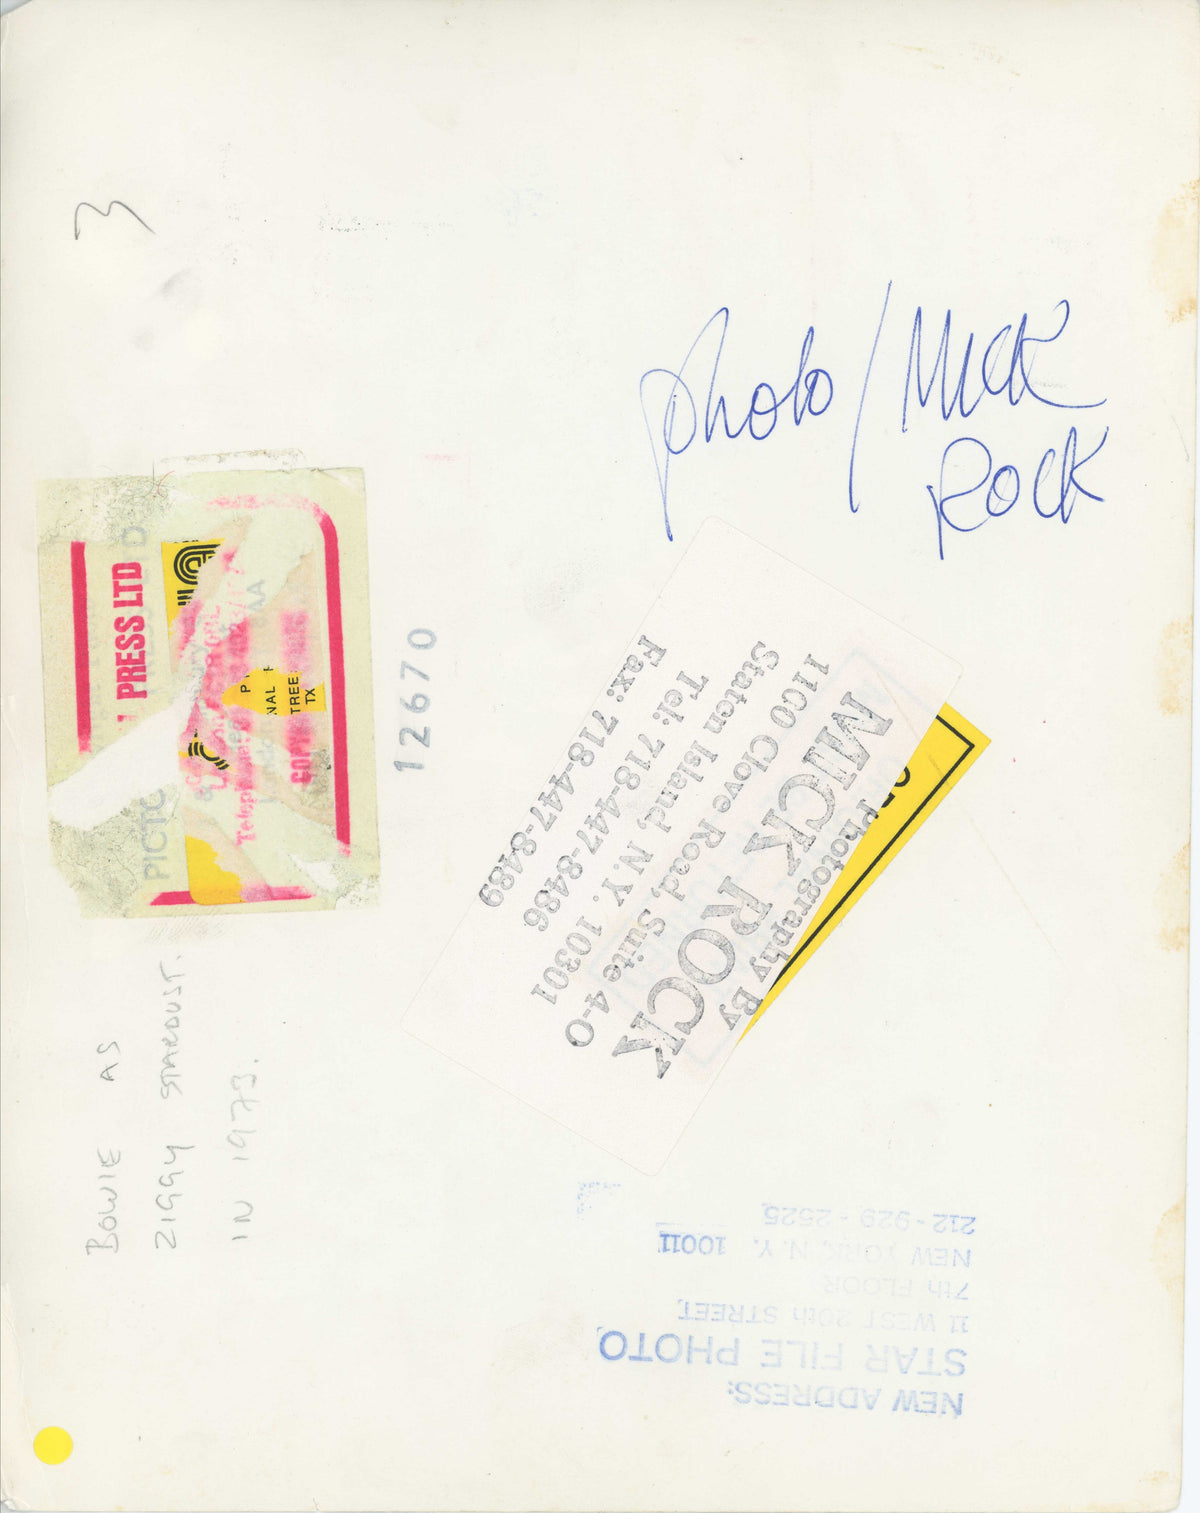 3
photo / MICK
ROCK
1 PRESS LTD
PICTO
Telep
COPY
NAL
TREE
TX
AA
12670
Photography By
MICK ROCK
1100 Clove Road, Suite 4-O
Staten Island, N.Y. 10301
Tel: 718-447-8486
Fax: 718-447-8489
BOWIE AS
ZIGGY STARDUST.
IN 1973.
NEW ADDRESS:
STAR FILE PHOTO
11 WEST 20th STREET
7th FLOOR
NEW YORK, N. Y. 10011
212 - 929 - 2525